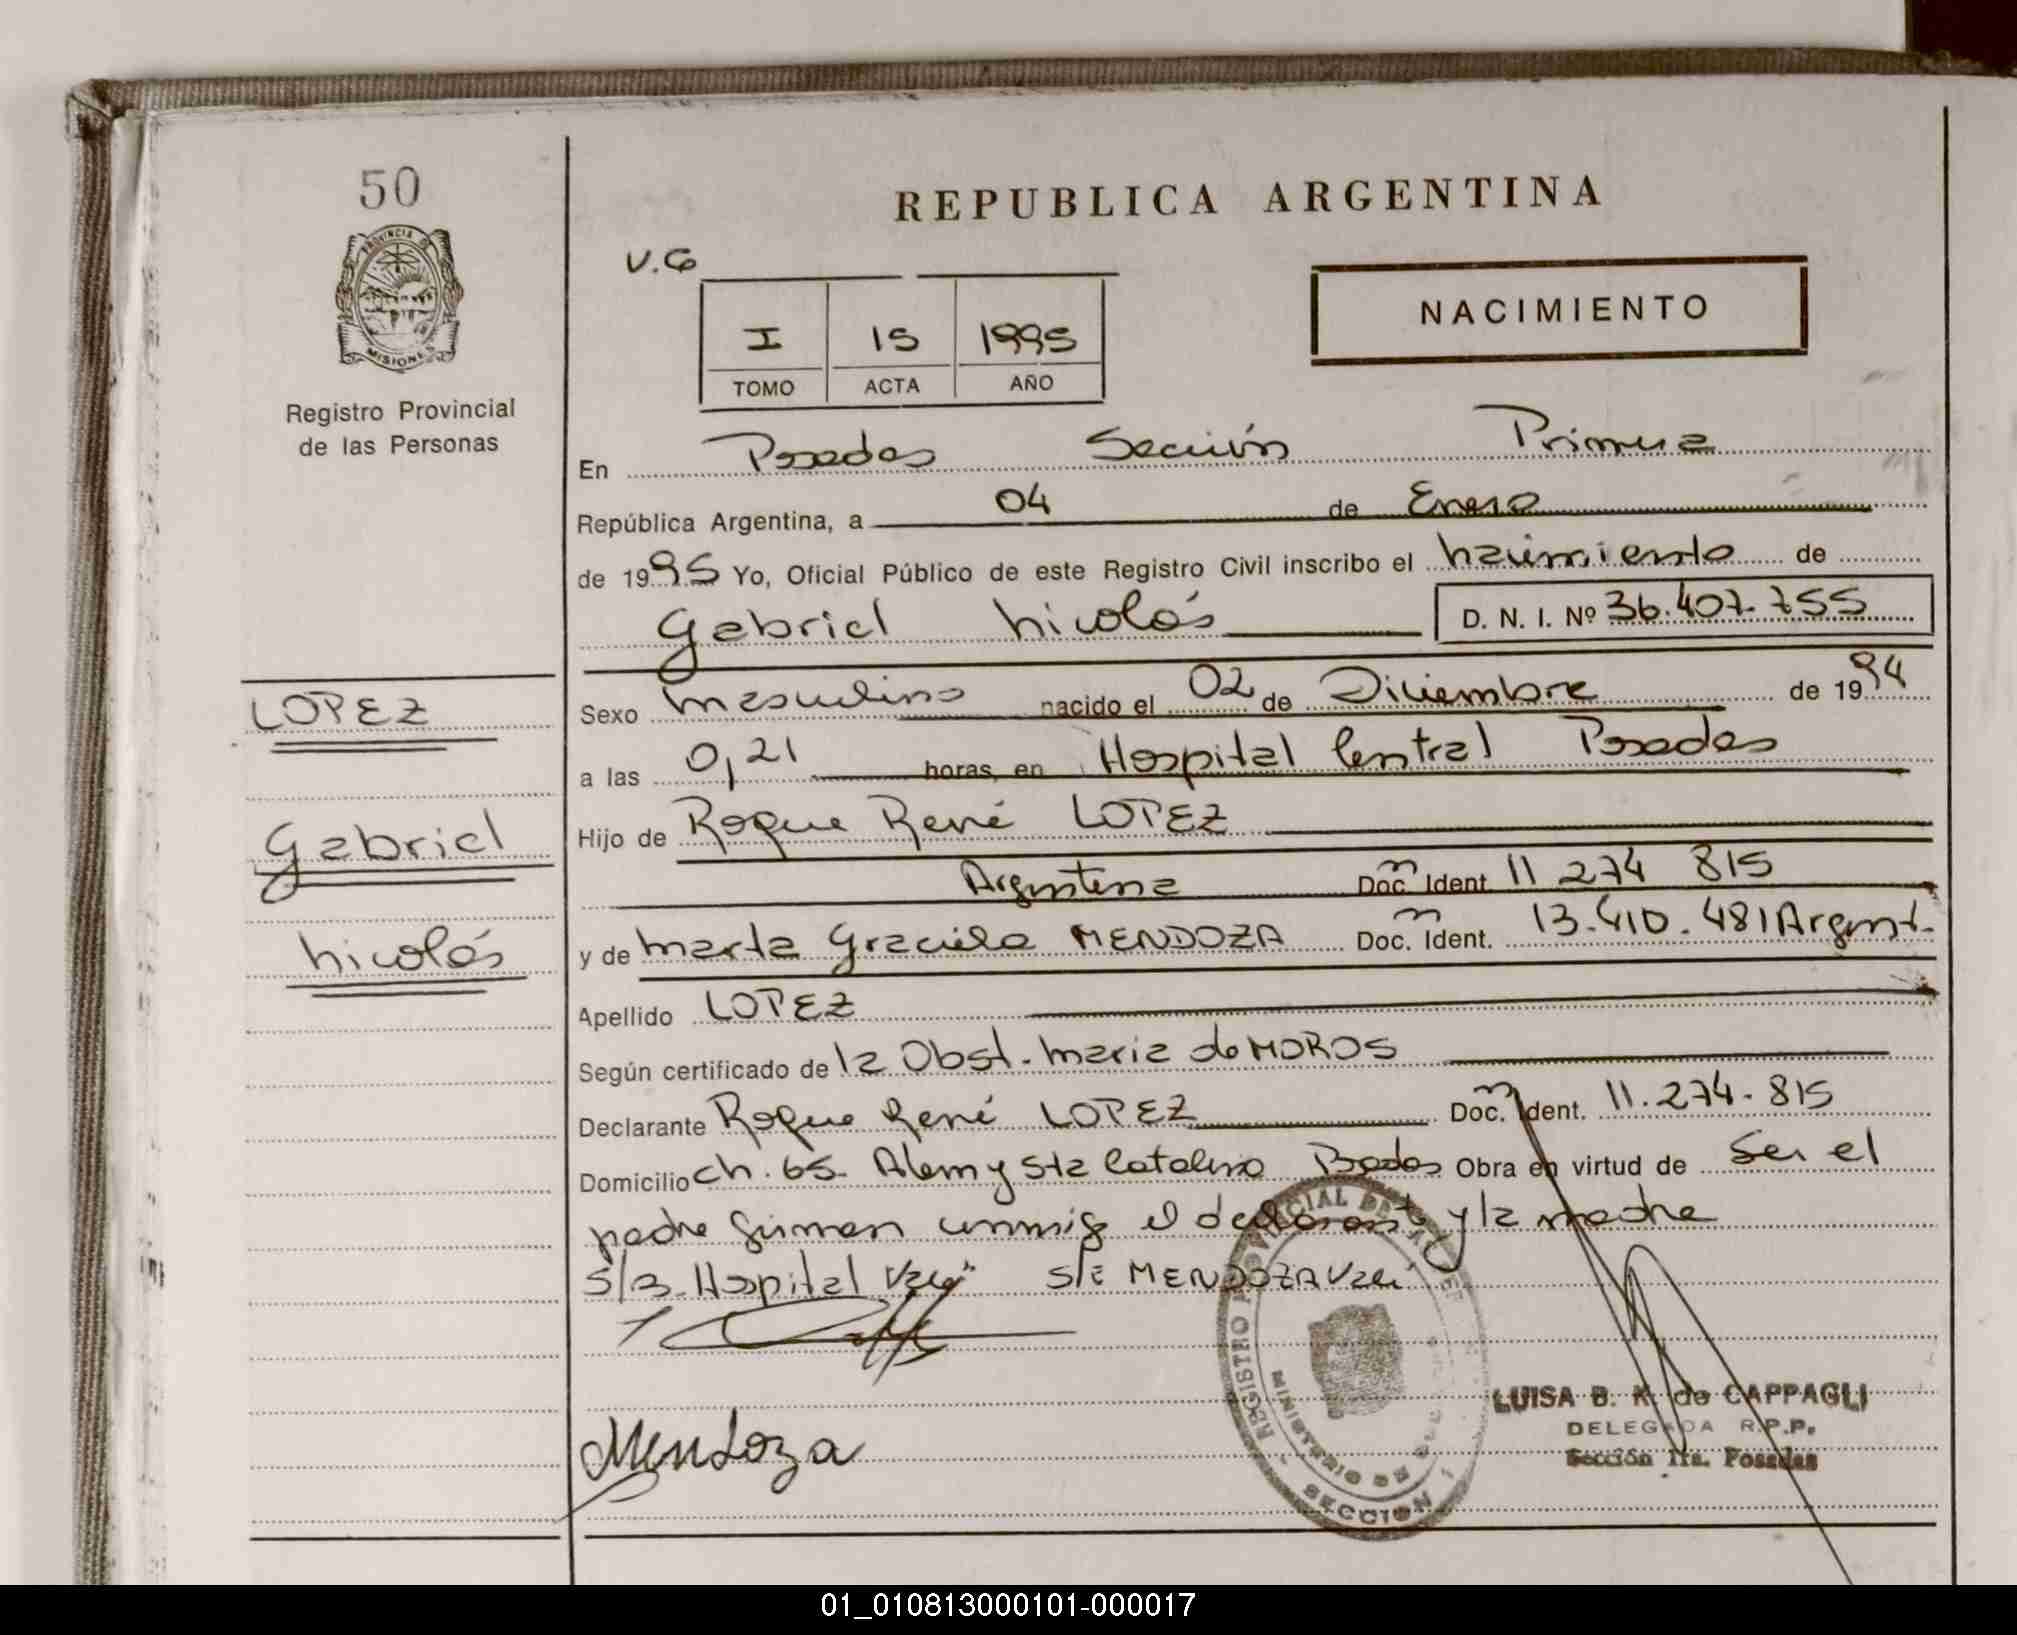 50
PROVINCIA DE
MISIONES
Registro Provincial
de las Personas
LOPEZ
Gabriel
Nicolás
REPUBLICA ARGENTINA
V.G
I 15 1995
TOMO ACTA AÑO
NACIMIENTO
En Posadas Sección Primera
República Argentina, a 04 de Enero
de 1995 Yo, Oficial Público de este Registro Civil inscribo el nacimiento de
Gabriel Nicolás D. N. I. Nº 36.407.755
Sexo masculino nacido el 02 de Diciembre de 1994
a las 0,21 horas, en Hospital Central Posadas
Hijo de Roque René LOPEZ
Argentina Doc. Ident 11 274 815
y de Marta Graciela MENDOZA Doc. Ident. 13.410.481 Argent.
Apellido LOPEZ
Según certificado de la Obst. Maria de MOROS
Declarante Roque René LOPEZ Doc. Ident. 11.274.815
Domicilio Ch. 65. Alem y Sta Catalina Posdas Obra en virtud de ser el
padre firman conmigo el declarante y la madre
S/B. Hospital Vale" S/E MENDOZA Vale
Mendoza
REGISTRO PROVINCIAL DE LAS PER
MINISTERIO DE
SECCION 1
LUISA B. K. de CAPPAGLI
DELEGADA R.P.P.
Sección 1ra. Posadas
01_010813000101-000017